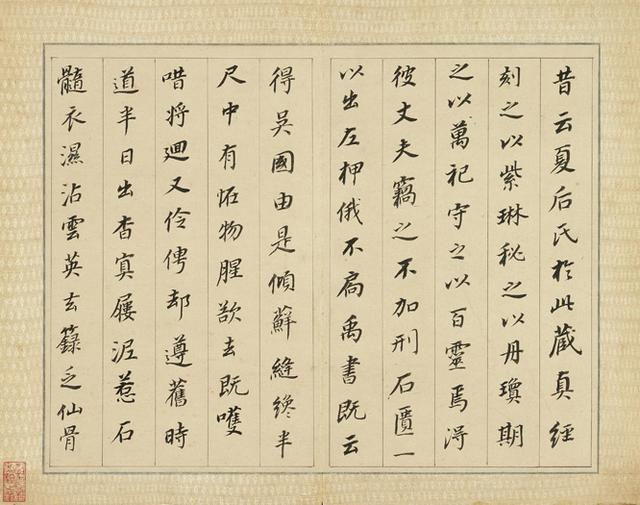 昔云夏后氏於此藏真經
刻之以紫琳秘之以丹瓊期
之以萬祀守之以百靈焉得
彼丈夫竊之不加刑石匱一
以出左押俄不扃禹書既云
得吳國由是傾蘚縫纔半
尺中有怪物腥欲去既嚄
唶將廻又伶俜却遵舊時
道半日出杳冥屨泥惹石
髓衣濕沾雲英玄籙乏仙骨